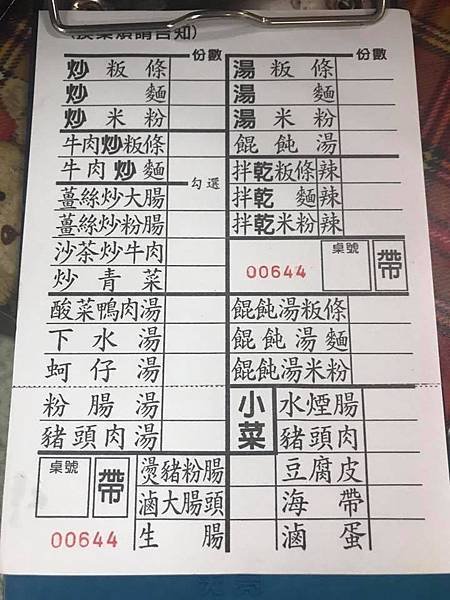 煩請告知)
份數
炒粄條
炒麵
炒米粉
牛肉炒粄條
牛肉炒麵
勾選
薑絲炒大腸
薑絲炒粉腸
沙茶炒牛肉
炒青菜
酸菜鴨肉湯
下水湯
蚵仔湯
粉腸湯
豬頭肉湯
桌號
帶
00644
燙豬粉腸
滷大腸頭
生腸
份數
湯粄條
湯麵
湯米粉
餛飩湯
拌乾粄條辣
拌乾麵辣
拌乾米粉辣
00644
桌號
帶
餛飩湯粄條
餛飩湯麵
餛飩湯米粉
小菜
水煙腸
豬頭肉
豆腐皮
海帶
滷蛋